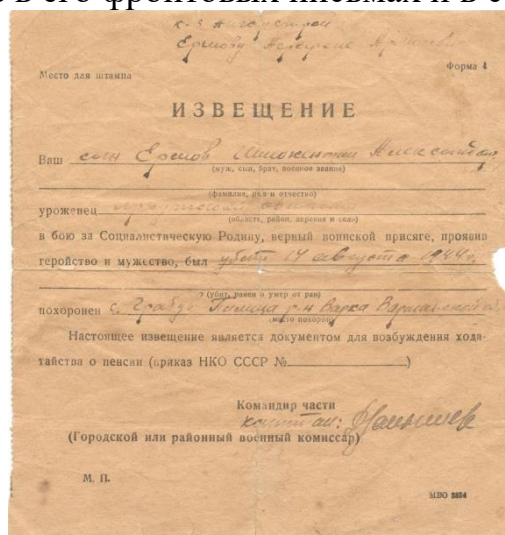 в его фронтовых письмах и в
Ермову
Место для штампа
Форма 4
ИЗВЕЩЕНИЕ
Ваш сын Ермов Иннокентий
(муж, сын, брат, военное звание)
(фамилия, имя и отчество)
уроженец
(область, район, деревня и село)
в бою за Социалистическую Родину, верный воинской присяге, проявив
геройство и мужество, был убит 14 августа 1944 г.
(убит, ранен и умер от ран)
похоронен с. Пилица р-н Варка Варшавской
(место похорон)
Настоящее извещение является документом для возбуждения хода-
тайства о пенсии (приказ НКО СССР № )
Командир части
капитан:
(Городской или районный военный комиссар)
М. П.